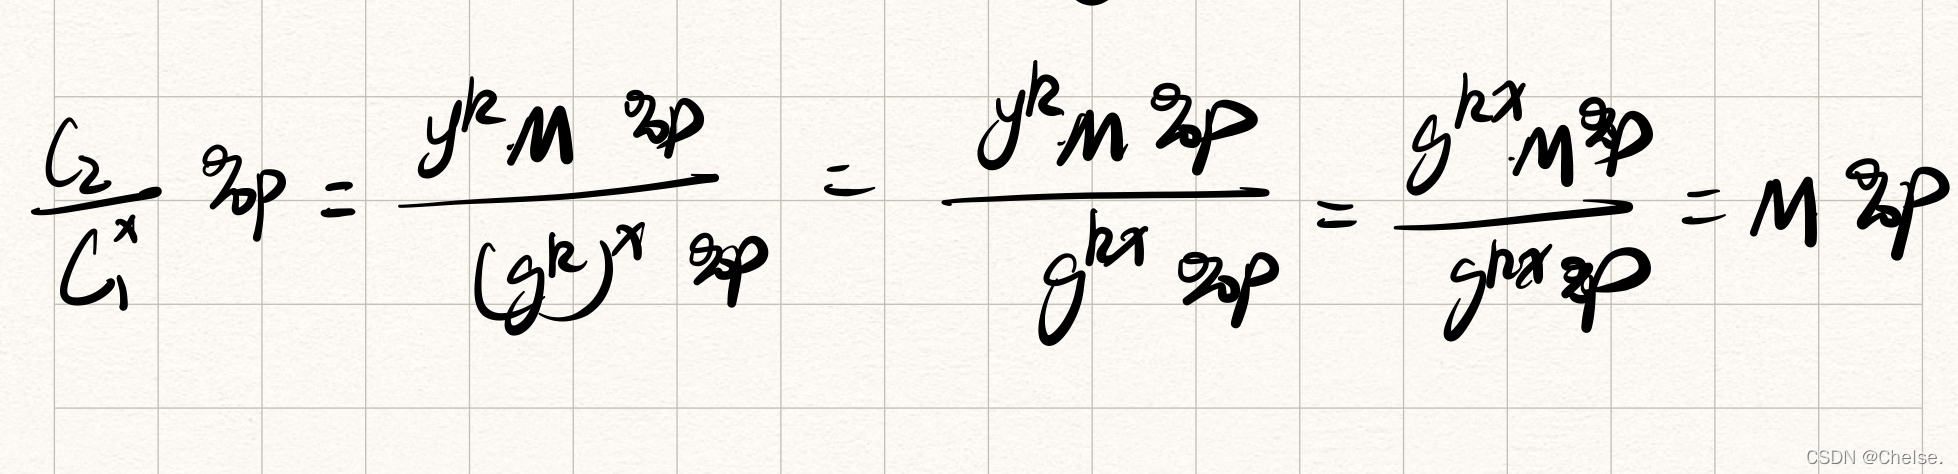 $\frac{C_2}{C_1^x} \% p = \frac{y^k M \% p}{(g^k)^x \% p} = \frac{y^k M \% p}{g^{kx} \% p} = \frac{g^{kx} M \% p}{g^{kx} \% p} = M \% p$
CSDN @Chelse.